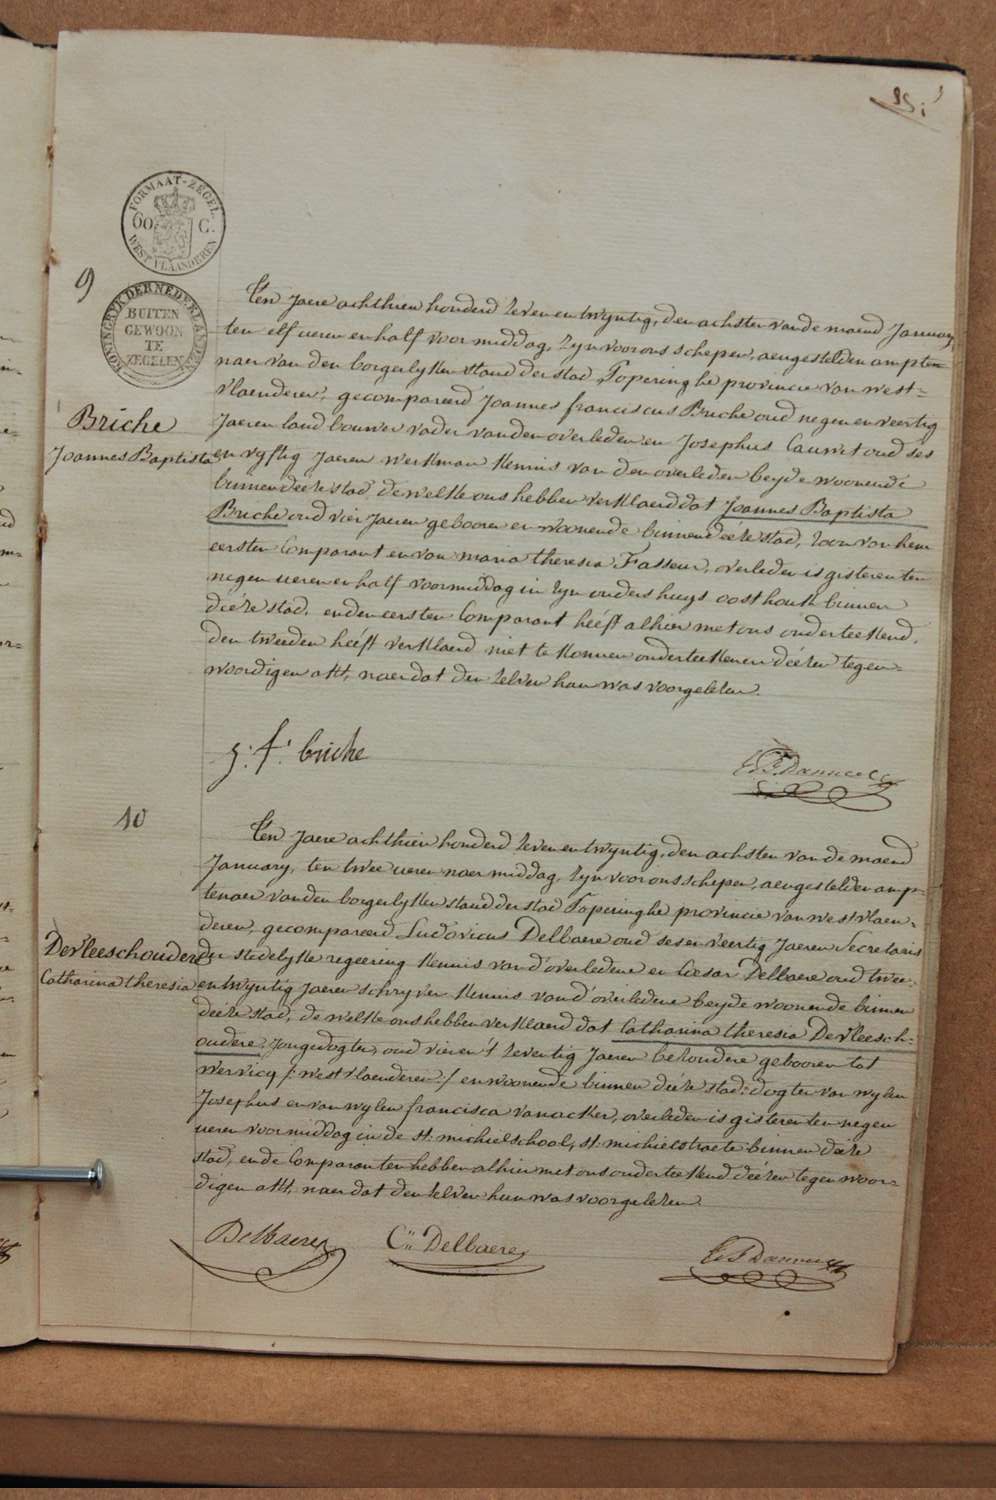 FORMAAT-ZEGEL
60 C.
WEST VLAANDEREN
KONINGRYK DER NEDERLANDEN
BUITEN
GEWOON
TE
ZEGELEN
9
Briche
Joannes Baptista
Ten Jaere achthien honderd zeven en twyntig, den achsten van de maend January
ten elf ueren en half voormiddag, zyn voor ons schepen, aengestelden ampte-
naer van den borgerlyken stand der stad Poperinghe provincie van west-
vlaenderen, gecompareerd Joannes franciscus Briche oud negen en veertig
Jaeren landbouwer vader van den overledenen Josephus Cauwet oud ses
en vyftig Jaeren werkman kennis van den overleden beyde woonende
binnen deéze stad, de welke ons hebben verklaerd dat Joannes Baptista
Briche oud vier Jaeren gebooren en woonende binnen deéze stad, zoon van hem
eersten Comparant en van maria theresia Fasseur, overleden is gisteren ten
negen ueren en half voormiddag in zyn ouders huys oosthouk binnen
deéze stad, en den eersten Comparant heéft alhier met ons onderteekend,
den tweeden heéft verklaerd niet te konnen onderteekenen deézen tegen-
woordigen akt, naer dat den zelven hun was voorgelezen.
j: f: briche
10
DeVleeschoudere
Catharina theresia
Ten Jaere achthien honderd zeven en twyntig, den achsten van de maend
January, ten twee ueren naermiddag, zyn voor ons schepen, aengestelden amp-
tenaer van den borgerlyken stand der stad Poperinghe provincie van westvlaen-
deren, gecompareerd Ludovicus Delbaere oud ses en veertig Jaeren Secretaris
der stedelyke regeering kennis van d'overledene en Cesar Delbaere oud twee-
en twyntig Jaeren schryver kennis van d'overledene beyde woonende binnen
deéze stad, de welke ons hebben verklaerd dat Catharina theresia DeVleesch-
oudere Jongedogter, oud vier en 't zeventig Jaeren behoudere gebooren tot
wervicq /: westvlaenderen :/ en woonende binnen deéze stad: dogter van wylen
Josephus en van wylen francisca vanacker, overleden is gisteren ten negen
ueren voormiddag in de St. michielschool, St. michielstraete binnen deéze
stad, en de Comparanten hebben alhier met ons onderteekend deézen tegenwoor-
digen akt, naer dat den zelven hun was voorgelezen.
Delbaere
C. Delbaere